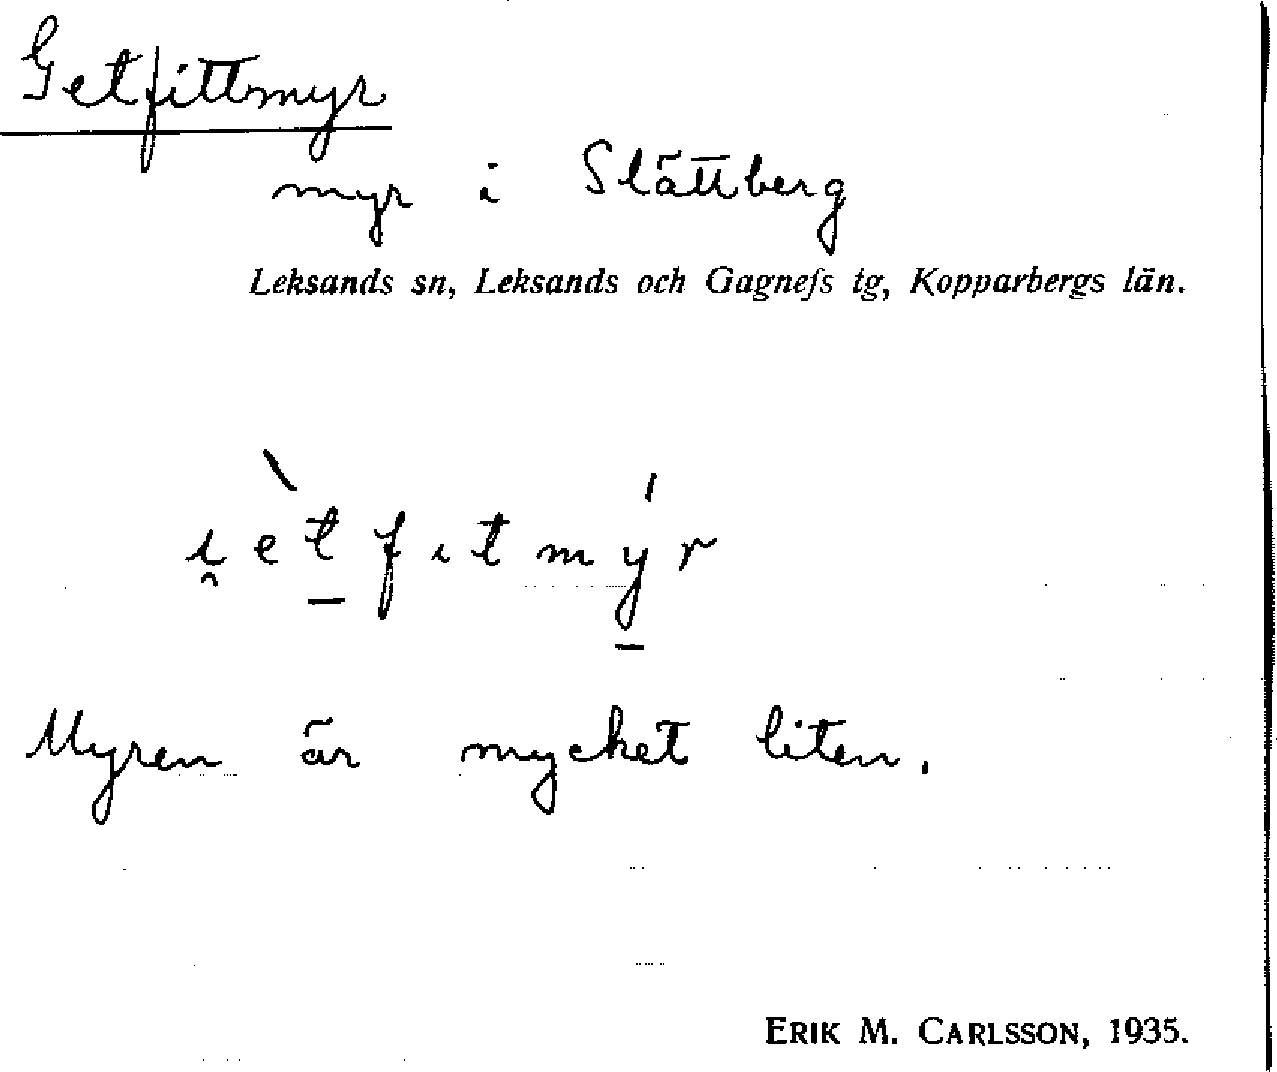 Getfittmyr
myr i Slättberg
Leksands sn, Leksands och Gagnefs tg, Kopparbergs län.
i̯èt̠fitmý̠r
Myren är mycket liten.
ERIK M. CARLSSON, 1935.